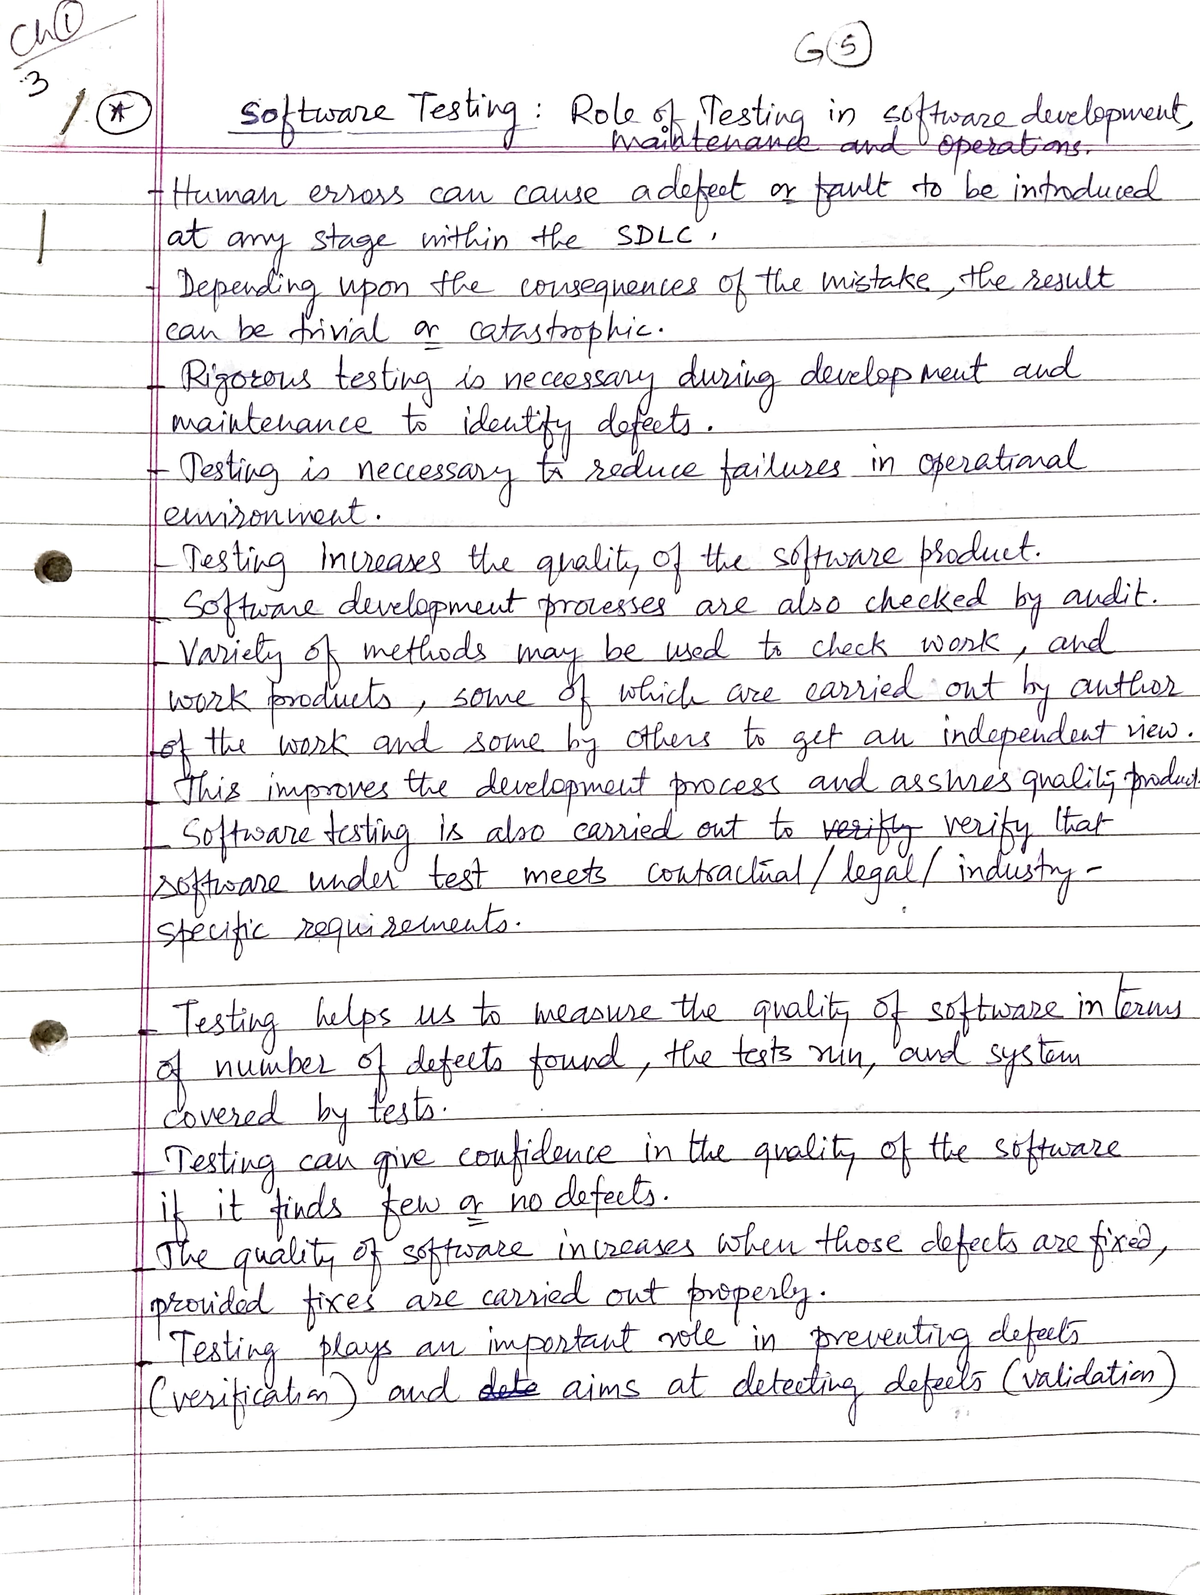 Ch ①
3
G ⑤
* Software Testing : Role of Testing in software development,
maintenance and operations.
- Human errors can cause a defect or fault to be introduced
at any stage within the SDLC.
- Depending upon the consequences of the mistake, the result
can be trivial or catastrophic.
- Rigorous testing is neccessary during development and
maintenance to identify defects.
- Testing is neccessary to reduce failures in operational
environment.
- Testing increases the quality of the software product.
- Software development processes are also checked by audit.
- Variety of methods may be used to check work, and
work products, some of which are carried out by author
of the work and some by others to get an independent view.
- This improves the development process and assures quality product.
- Software testing is also carried out to verify verify that
software under test meets contractual/legal/industry-
specific requirements.
- Testing helps us to measure the quality of software in terms
of number of defects found, the tests run, and system
covered by tests.
- Testing can give confidence in the quality of the software
if it finds few or no defects.
- The quality of software increases when those defects are fixed,
provided fixes are carried out properly.
- Testing plays an important role in preventing defects
(verification) and dete aims at detecting defects (validation)